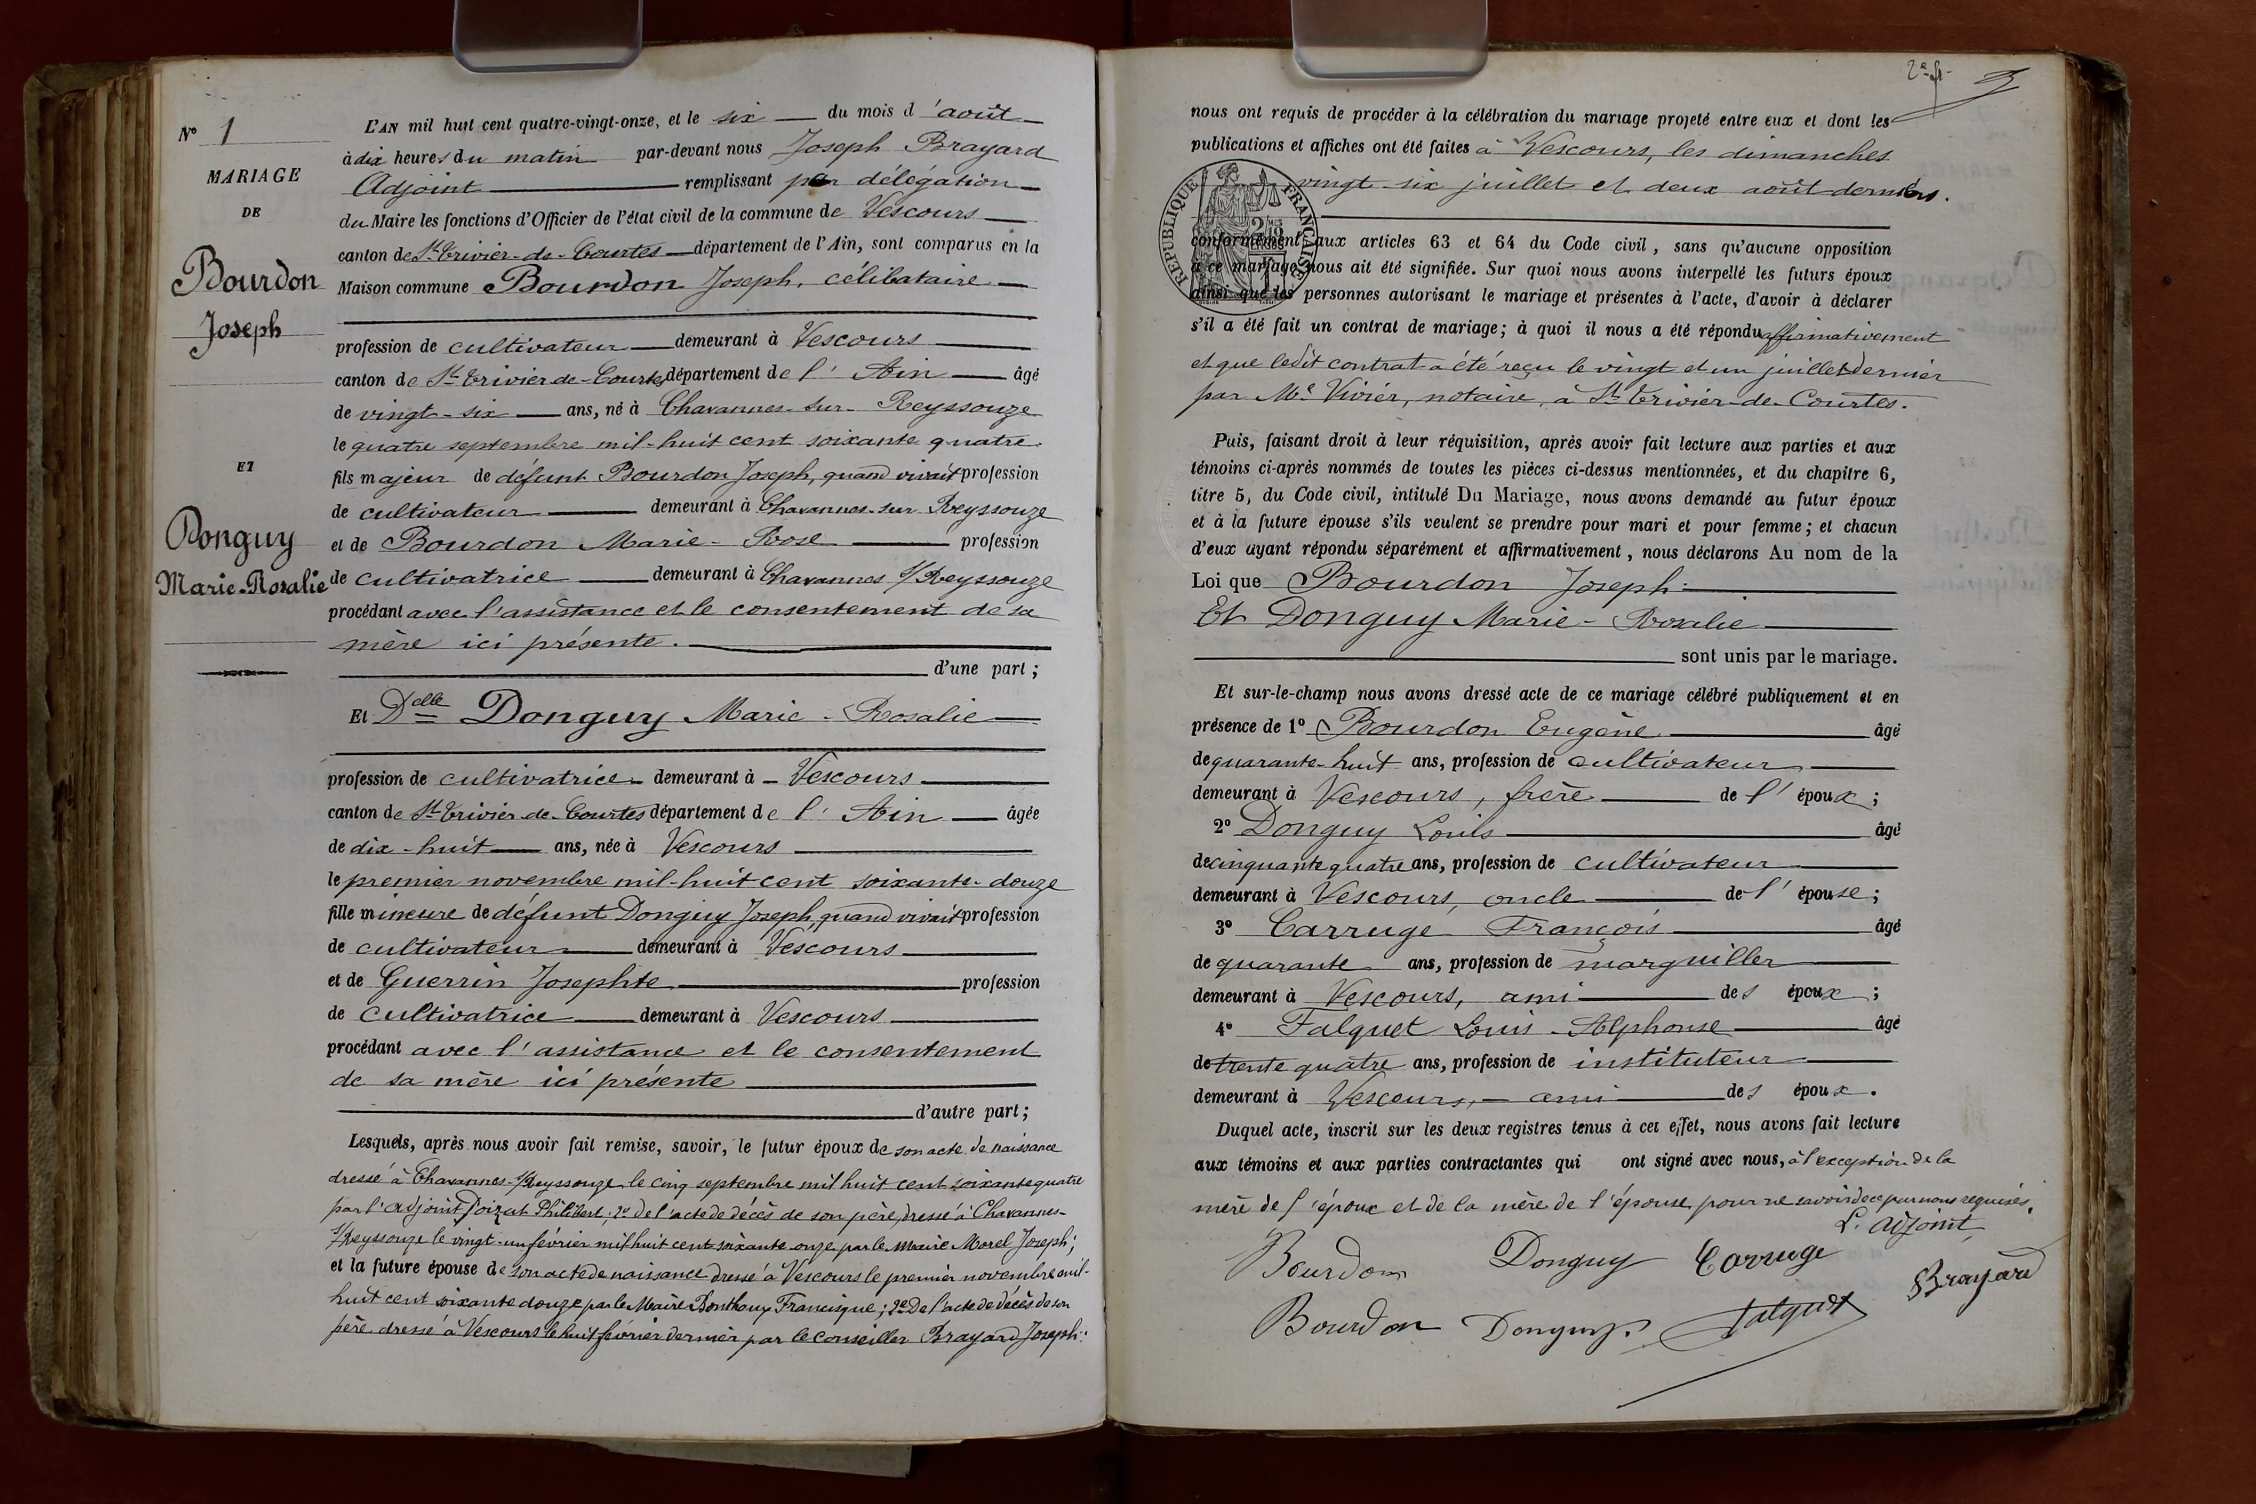 N° 1
MARIAGE
DE
Bourdon
Joseph
ET
Donguy
Marie-Rosalie
L'AN mil huit cent quatre-vingt-onze, et le six du mois d'août
à dix heures du matin par-devant nous Joseph Brayard
Adjoint remplissant par délégation
du Maire les fonctions d'Officier de l'état civil de la commune de Vescours
canton de St Trivier-de-Courtes département de l'Ain, sont comparus en la
Maison commune Bourdon Joseph, célibataire
profession de cultivateur demeurant à Vescours
canton de St Trivier-de-Courtes département de l'Ain âgé
de vingt-six ans, né à Chavannes-sur-Reyssouze
le quatre septembre mil-huit cent soixante quatre
fils majeur de défunt Bourdon Joseph, quand vivait profession
de cultivateur demeurant à Chavannes-sur Reyssouze
et de Bourdon Marie-Rose profession
de cultivatrice demeurant à Chavannes s/Reyssouze
procédant avec l'assistance et le consentement de sa
mère ici présente.
d'une part;
Et Delle Donguy Marie-Rosalie
profession de cultivatrice demeurant à Vescours
canton de St Trivier-de-Courtes département de l'Ain âgée
de dix-huit ans, née à Vescours
le premier novembre mil-huit cent soixante-douze
fille mineure de défunt Donguy Joseph, quand vivait profession
de cultivateur demeurant à Vescours
et de Guerrin Josephte profession
de cultivatrice demeurant à Vescours
procédant avec l'assistance et le consentement
de sa mère ici présente
d'autre part;
Lesquels, après nous avoir fait remise, savoir, le futur époux de son acte de naissance
dressé à Chavannes-s/Reyssouze le cinq septembre mil huit cent soixante quatre
par l'adjoint Doizat Philibert; 2° de l'acte de décès de son père, dressé à Chavannes-
s/Reyssouze le vingt-un février mil huit cent soixante onze par le Maire Morel Joseph;
et la future épouse de son acte de naissance dressé à Vescours le premier novembre mil-
huit cent soixante douze par le Maire Ponthoux Francisque; 2° De l'acte de décès de son
père dressé à Vescours le huit février dernier par le conseiller Brayard Joseph.
2e ft
nous ont requis de procéder à la célébration du mariage projeté entre eux et dont les
publications et affiches ont été faites à Vescours, les dimanches
vingt-six juillet et deux août derniers.
RÉPUBLIQUE FRANÇAISE
conformément aux articles 63 et 64 du Code civil, sans qu'aucune opposition
à ce mariage nous ait été signifiée. Sur quoi nous avons interpellé les futurs époux
ainsi que les personnes autorisant le mariage et présentes à l'acte, d'avoir à déclarer
s'il a été fait un contrat de mariage; à quoi il nous a été répondu affirmativement
et que ledit contrat a été reçu le vingt et un juillet dernier
par Me Vivier, notaire, à St Trivier-de-Courtes.
Puis, faisant droit à leur réquisition, après avoir fait lecture aux parties et aux
témoins ci-après nommés de toutes les pièces ci-dessus mentionnées, et du chapitre 6,
titre 5, du Code civil, intitulé Du Mariage, nous avons demandé au futur époux
et à la future épouse s'ils veulent se prendre pour mari et pour femme; et chacun
d'eux ayant répondu séparément et affirmativement, nous déclarons Au nom de la
Loi que Bourdon Joseph
Et Donguy Marie-Rosalie
sont unis par le mariage.
Et sur-le-champ nous avons dressé acte de ce mariage célébré publiquement et en
présence de 1° Bourdon Eugène âgé
de quarante-huit ans, profession de cultivateur
demeurant à Vescours, frère de l'époux;
2° Donguy Louis âgé
de cinquante quatre ans, profession de cultivateur
demeurant à Vescours, oncle de l'épouse;
3° Carruge François âgé
de quarante ans, profession de marguiller
demeurant à Vescours, ami des époux;
4° Falquet Louis-Alphonse âgé
de trente quatre ans, profession de instituteur
demeurant à Vescours, ami des époux.
Duquel acte, inscrit sur les deux registres tenus à cet effet, nous avons fait lecture
aux témoins et aux parties contractantes qui ont signé avec nous, à l'exception de la
mère de l'époux et de la mère de l'épouse pour ne savoir de ce par nous requises.
L'adjoint
Bourdon Donguy Carruge
Brayard
Bourdon Donguy. Falquet